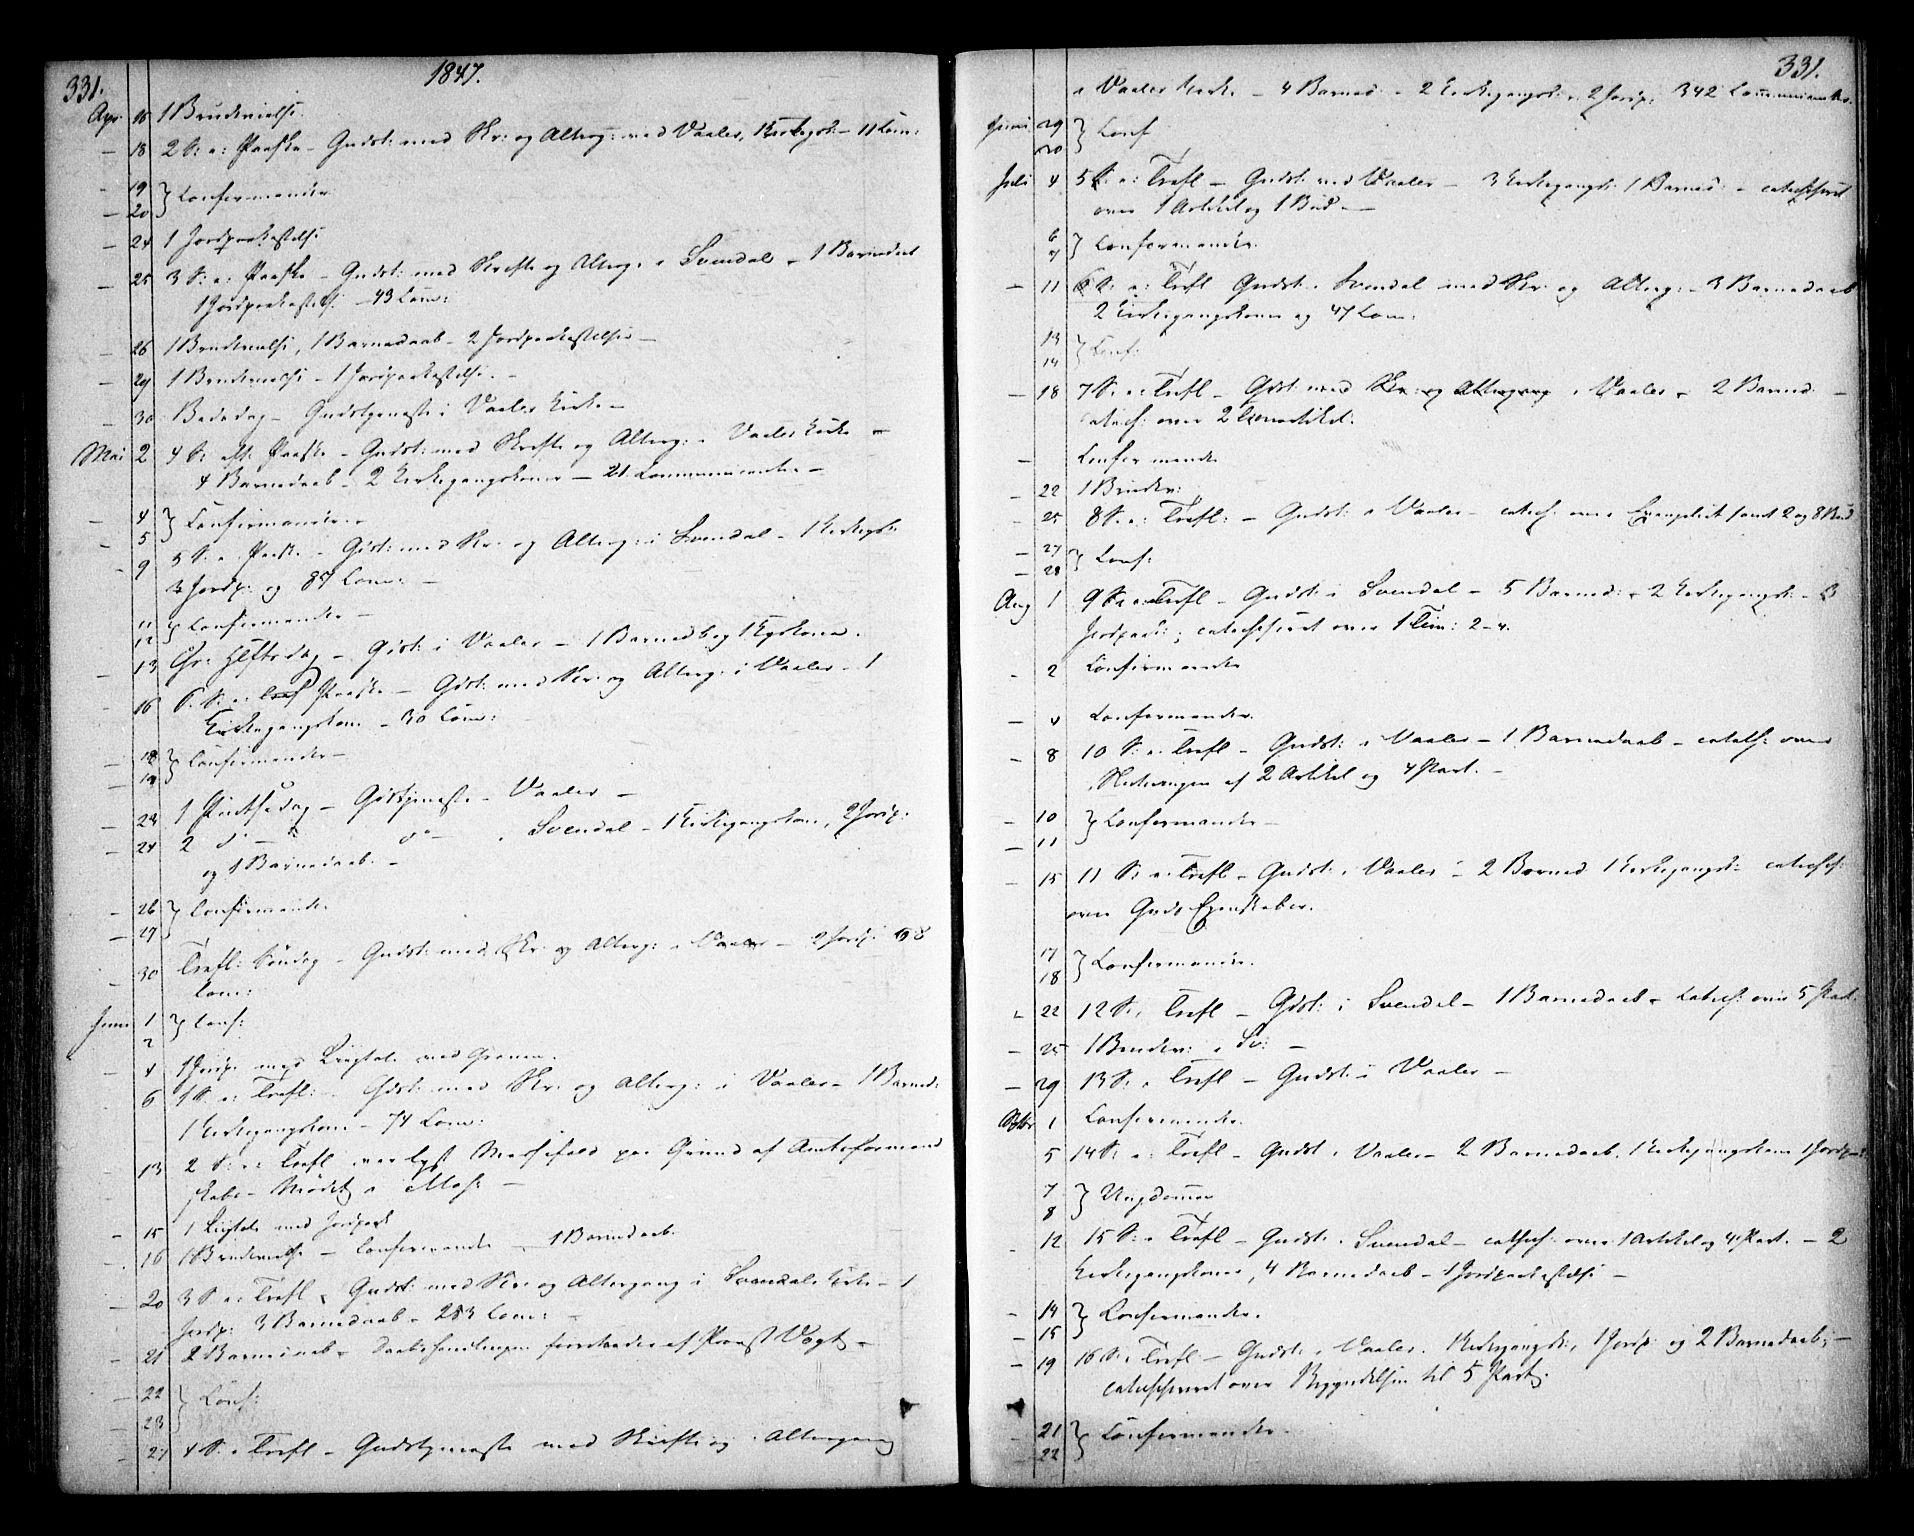 331.
1847.
Apr. 15 1 Brudevielse.
— 18 2 S: e: Paaske – Gudst: med Skr: og Alterg: ved Vaaler, 1 Kirkegsk – 11 Com:
- 19 } Confirmander
— 20
— 24 1 Jordpaakastelse
— 25 3 S: e: Paaske – Gudst: med Skrifte og Alterg. i Svendal – 1 Barnedaab
1 Jordpaakastelse – 43 Com:
— 26 1 Brudevielse, 1 Barnedaab – 2 Jordpaakastelser –
— 29 1 Brudevielse – 1 Jordpaakastelse. –
— 30 Bededag – Gudstjeneste i Vaaler Kirke –
Mai 2 4 S: eft: Paaske – Gudst: med Skrifte og Alterg: i Vaaler Kirke –
4 Barnedaab – 2 Kirkegangskoner – 21 Communicanter –
— 4 } Confirmander
— 5
— 9 5 S: e: Paaske – Gdst: med Skr: og Alterg: i Svendal – 1 Kirkegsk:
Jordp: og 87 Com: –
— 11 } Confirmander –
— 12
— 13 Chr: Hfts dag – Gdst: i Vaaler – 1 Barnedb og 1 Kgskone.
— 16 6. S: e: Paaske – Gdst: med Skr: og Alterg: i Vaaler – 1
Kirkegangskone – 30 Com:
— 18 } Confirmander –
— 19
— 23 1 Pintsedag – Gdstjeneste i Vaaler –
— 24 2 d° – d° – i Svendal – 1 Kirkegangskone, 2 Jordp:
og 1 Barnedaab. –
— 26 } Confirmander
— 27
— 30 Trefl: Søndag – Gudst: med Skr: og Alterg: i Vaaler – 2 Jordp:
Com:
Juni 1 } Conf:
2
— 4 1 Jordp: med Liigtale ved Graven.
— 6 1 S: e: Trefl: – Gdst: med Skr: og Alterg: i Vaaler – 1 Barned:
1 Kirkegangskone – 74 Com:
13 2 S: e: Trefl var lyst Messefald paa Grund af Amtsformand
skabs–Mødet i Moss –
— 15 1 Liigtale med Jordpaak
— 16 1 Brudevielse – Confirmander – 1 Barnedaab.
— 20 3 S: e: Trefl – Gudst: med Skr: og Altergang i Svendals Kirke – 1
Jordp: 3 Barnedaab – 253 Com:
— 21 2 Barnedaab – Daabshandlingen forrettedes af Provst Vogt –
— 22 } Conf:
— 23
— 27 4 S. e Trefl – Gudstjeneste med Skrifte og Altergang
331.
i Vaaler Kirke – 4 Barned – 2 Kirkegangsk: 2 Jordp: 342 Communicanter.
Juni 29 } Conf
30
Juli 4 5 S. e: Trefl – Gudst: ved Vaaler – 3 Kirkegangsk: 1 Barned: – catechiseret
over 1 Artikel og 1 Bud –
6 } Confirmander.
7
— 11 6 S: e: Trefl Gudst: i Svendal med Skr: og Alterg: – 3 Barnedaab
2 Kirkegangskoner og 47 Com:
13 } Conf:
14
— 18 7 S. e: Trefl – Gdst: med Skr: og Altergang i Vaaler – 2 Barned –
catech: over 2 Artikel:
— Confirmander
— 22 1 Brudev:
— 25 8 S. e: Trefl: – Gudst: i Vaaler – catech: over Evangeliet samt 2 og 8 Bud
— 27 } Conf:
— 28
Aug 1 9 S. e. Trefl – Gudst: i Svendal – 5 Barned: – 2 Kirkegangsk: – 3
Jordpaak:; catechiseret over 1 Tim: 2–4.
- 2 Confirmander
— 4 Confirmander.
— 8 10 S: e: Trefl – Gudst: i Vaaler – 1 Barnedaab – catech: over
Slutningen af 2 Artikel og 4 Part. –
— 10 } Confirmander –
— 11
— 15 11 S: e: Trefl – Gudst: i Vaaler – 2 Barned 1 Kirkegangsk: catech:
over Guds Egenskaber.
17 } Confirmander.
18
- 22 12 S. e Trefl – Gdst: i Svendal – 1 Barnedaab – Catech: over 5 Part.
— 25 1 Brudev: i Sv: –
— 29 13 S: e Trefl – Gudst: i Vaaler –
Septbr 1 Confirmander.
5 14 S: e: Trefl – Gudst: i Vaaler – 2 Barnedaab. 1 Kirkegangskone 1 Jordpaak:
7 } Ungdommen
8
- 12 15 S: e Trefl – Gudst: i Svendal – catech: over 1 Artikel og 4 Part. – 2
Kirkegangskoner, 4 Barnedaab – 1 Jordpaakastelse –
— 14 } Confirmander.
— 15
— 19 16 S: e Trefl – Gudst: i Vaaler. Kirkegangsk:, 1 Jordp: og 2 Barnedaab; –
catechiseret over Begyndelsen til 5 Part.
- 21 } Confirmander.
- 22